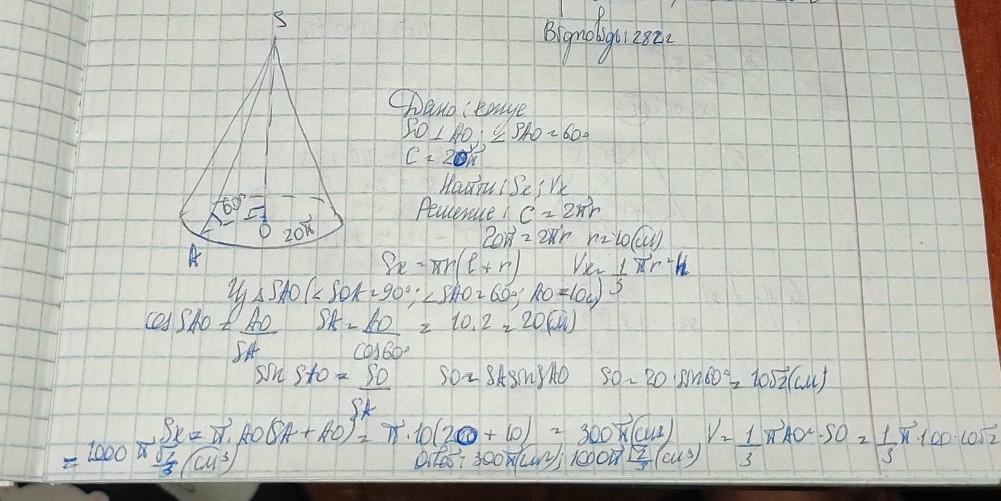 S
Відповідь: 282 г
Дано: конус
SO ⊥ AO; ∠SAO = 60°
C = 20π
Найти: Sк; Vк
60°
O
20π
A
Решение: C = 2πr
20π = 2πr r = 10(см)
Sк = πr(l + r) Vк = 1/3 πr²H
Из △SAO (∠SOA = 90°; ∠SAO = 60°; AO = 10)
cos SAO = AO/SA SA = AO/cos60° = 10·2 = 20(см)
sin SAO = SO/SA SO = SA sin SAO SO = 20·sin60° = 10√2(см)
Sк = π·AO(SA + AO) = π·10(20 + 10) = 300π(см²) V = 1/3 πAO²·SO = 1/3 π·100·10√2
= 1000π √2/3 (см³) Ответ: 300π(см²); 1000π √2/3 (см³)